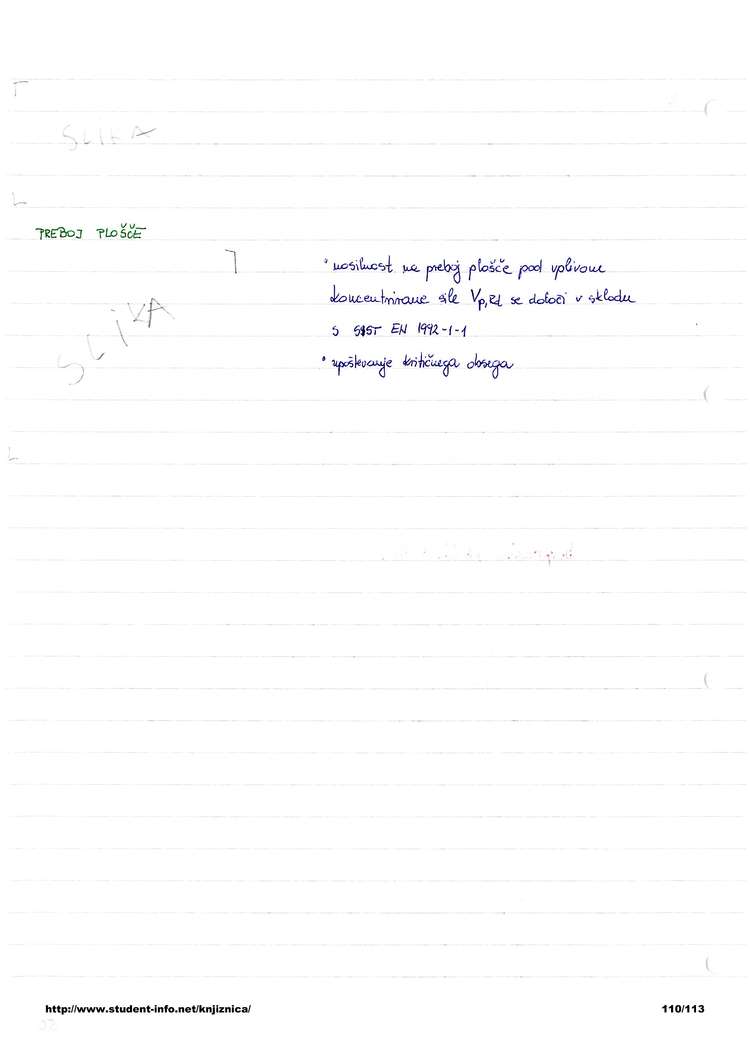 SLIKA
PREBOJ PLOŠČE
• nosilnost na preboj plošče pod vplivom
koncentrirane sile Vp,Rd se določi v skladu
SLIKA
s SIST EN 1992-1-1
• upoštevanje kritičnega obsega
http://www.student-info.net/knjiznica/
110/113